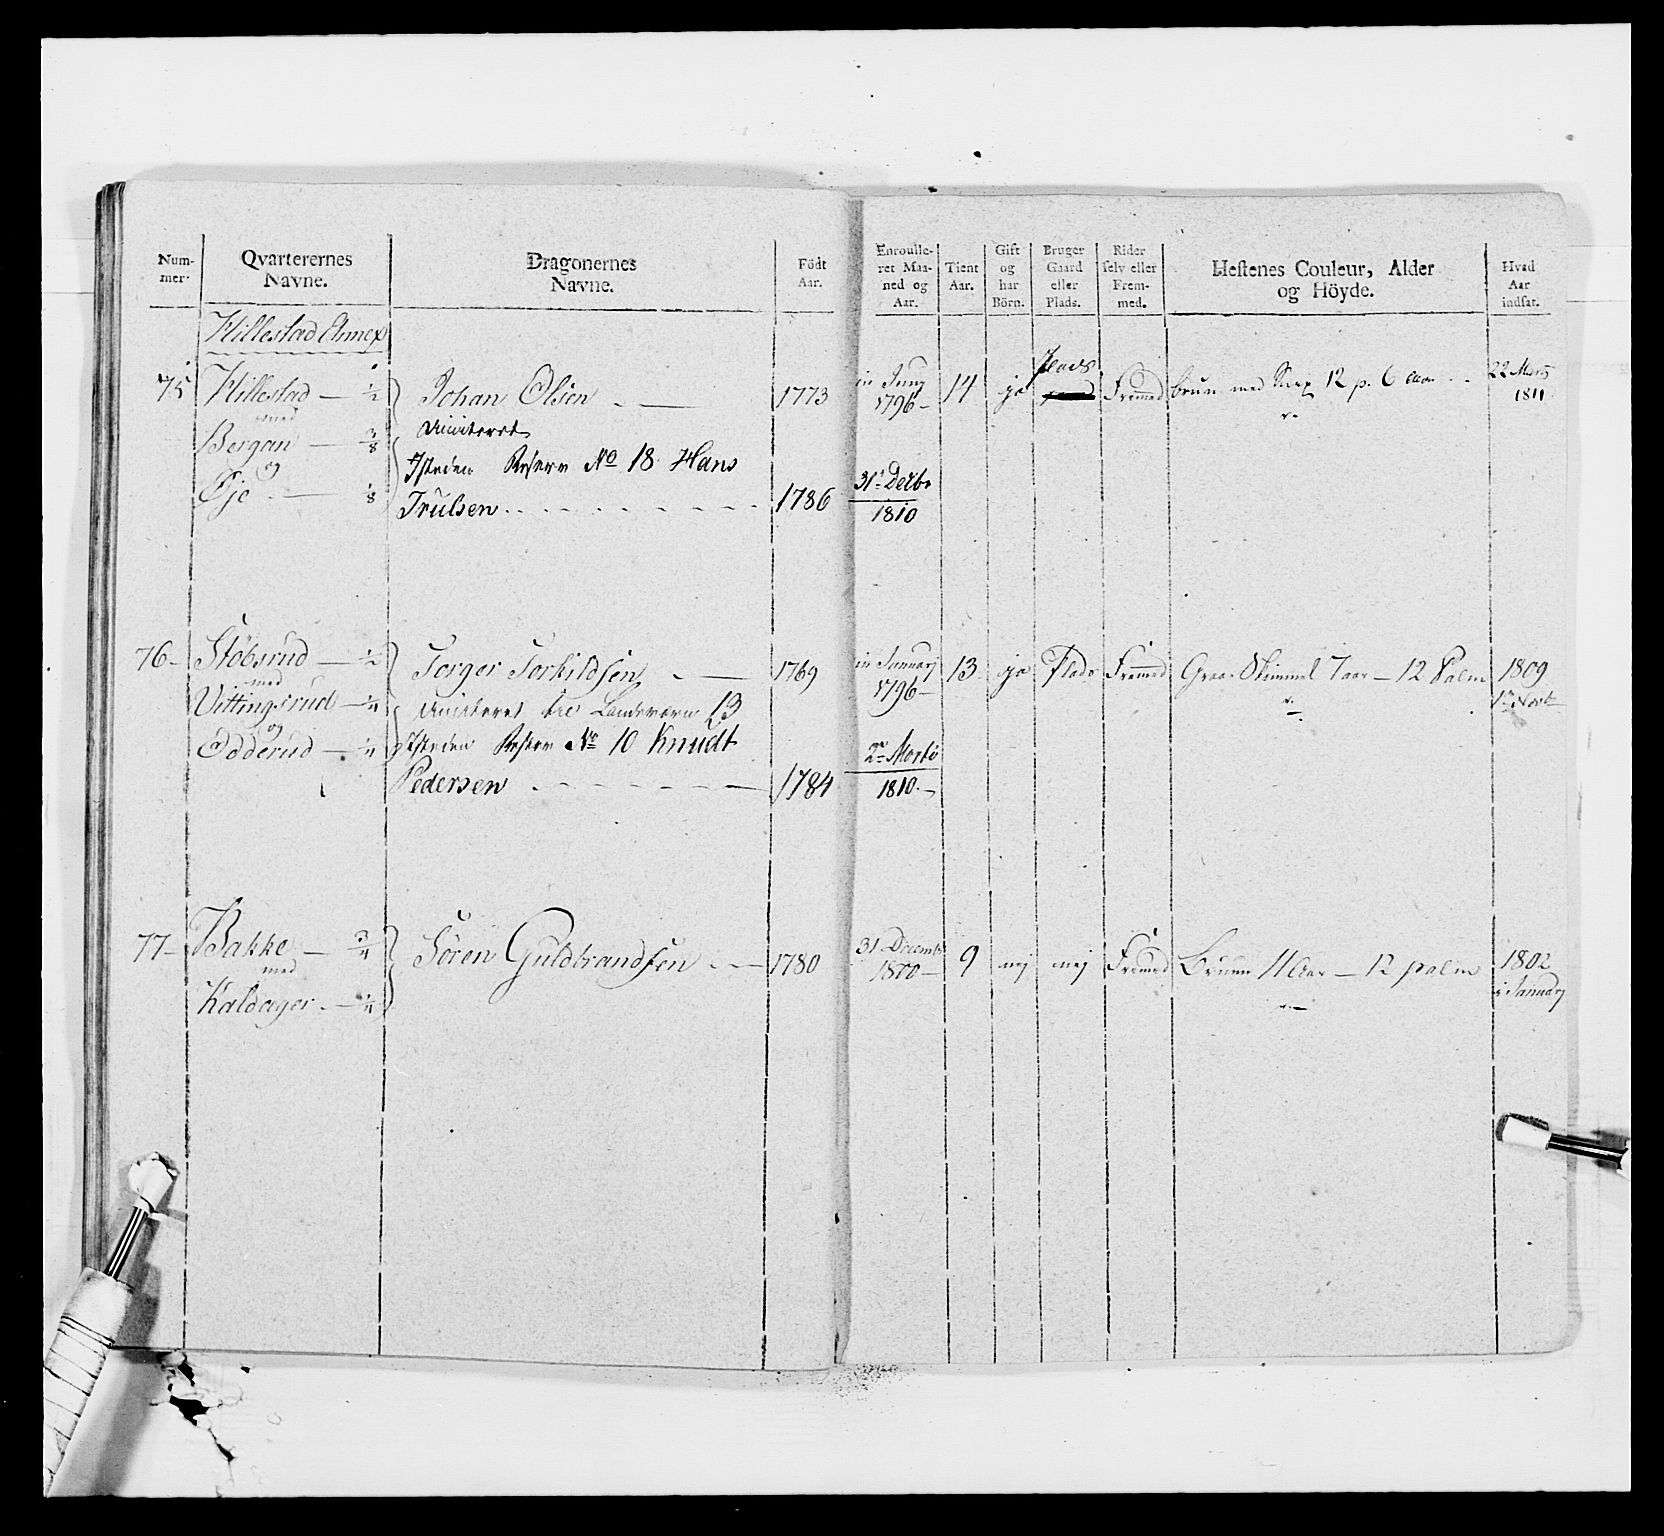 Num-
mer.
Qvarterernes
Navne.
Dragonernes
Navne.
Födt
Aar.
Enroulle-
ret Maa-
ned og
Aar.
Tient
Aar.
Gift
og
har
Börn.
Bruger
Gaard
eller
Plads.
Rider
selv eller
Frem-
med.
Hestenes Couleur, Alder
og Höyde.
Hvad
Aar
indsat.
Hillestad Annex
75 Hillestad — 1/2 Johan Olsen . — 1773 in Juny 1796 — 14 ja Plads Fremed brun med 12 p. 6 Aar . . 22 Marts 1811
med
Bergan — 3/8
og
Øje . — 1/8
Isteden Reserve No 18 Hans
Trulsen . . . . 1786 31te Decbr 1810
76 — Stöbsrud — 1/2 Torger Torkildsen . — 1769 in Januarj 1796 — 13 ja Plads Fremed Graa Skimmel 7 aar — 12 Palm 1809
med
Vittingsrud — 1/4 til Landeværn 13
og
Odderud — 1/4 Isteden Reserve No 10 Knudt
Pedersen . — 1784 2den Marts 1810 . —
77 — Bakke — 3/4 Sören Guldbrandsen . — 1780 31 Decemb 1800 — 9 nej nej Fremed Bruun 11 Aar — 12 palm 1802
med
Kaldager . — 1/4 i Januarj